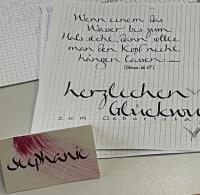 Wenn einem das
Wasser bis zum
Hals steht, dann sollte
man den Kopf nicht
hängen lassen
herzlichen
Glückwu
zum Geburtsta
stephanie